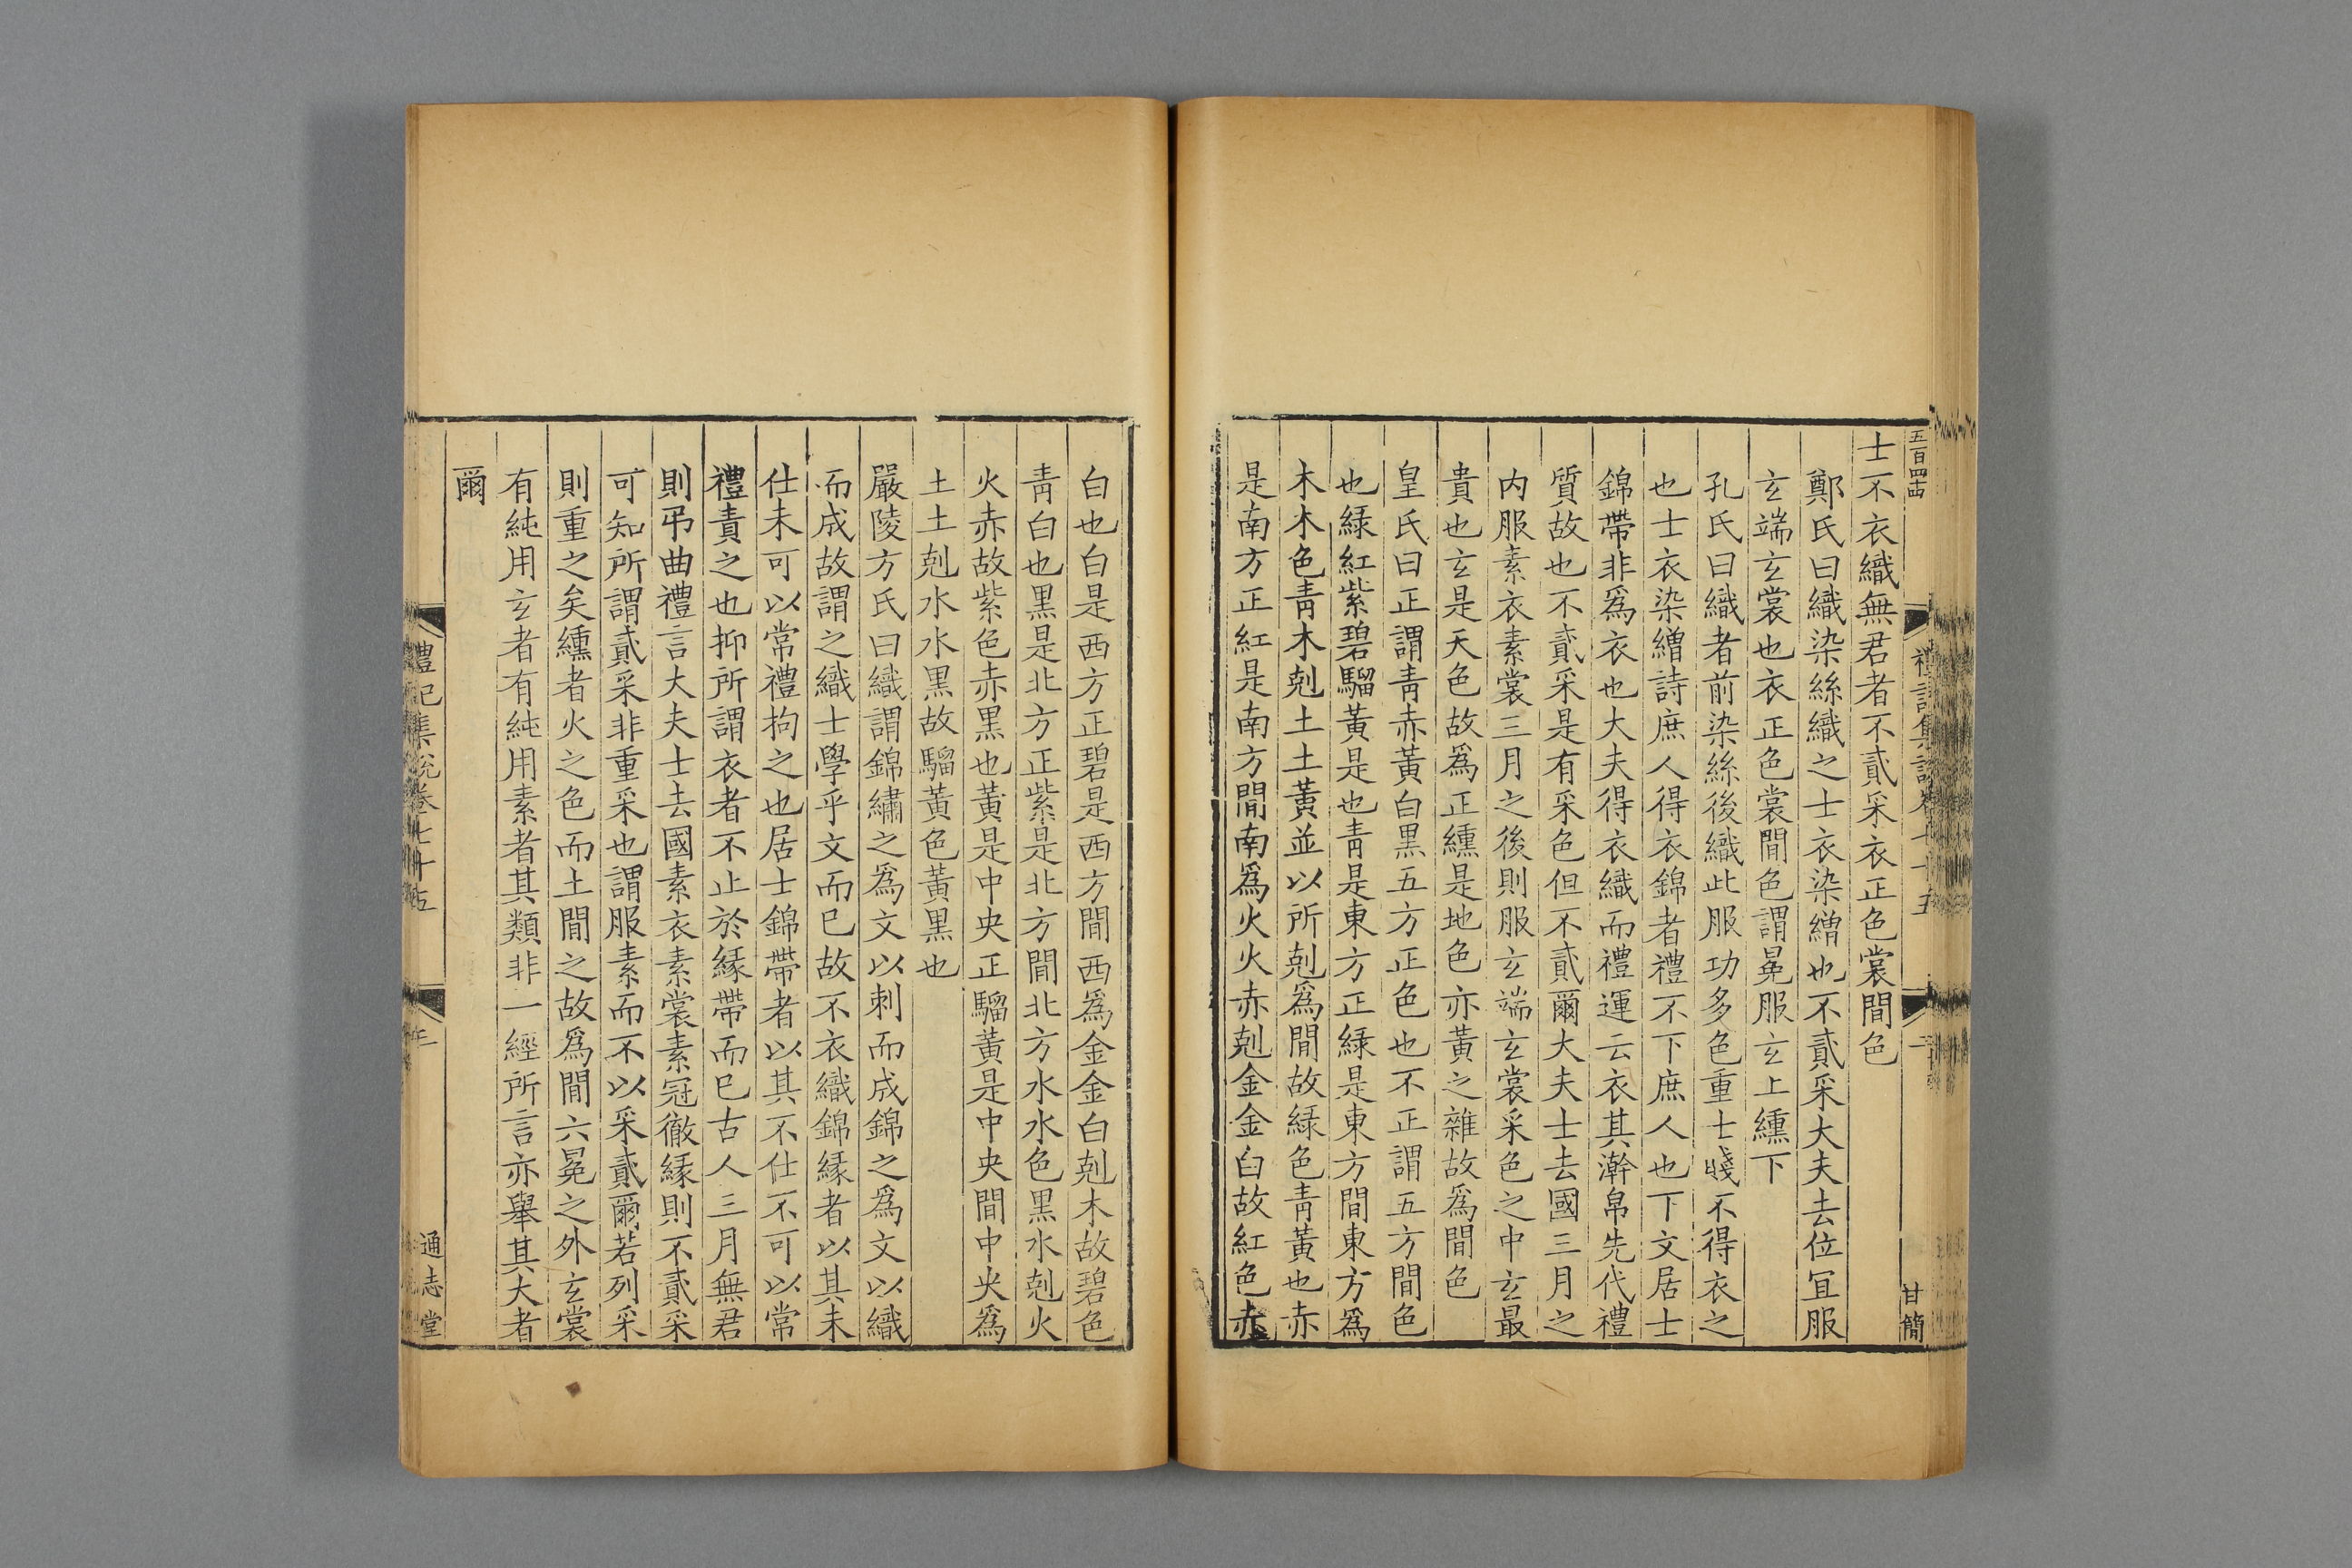 五百四十四
禮記集說卷七十五
甘簡
士不衣織無君者不貳采衣正色裳間色
鄭氏曰織染絲織之士衣染繒也不貳采大夫去位冝服
玄端玄裳也衣正色裳間色謂冕服玄上纁下
孔氏曰織者前染絲後織此服功多色重士賤不得衣之
也士衣染繒詩庶人得衣錦者禮不下庶人也下文居士
錦帶非爲衣也大夫得衣織而禮運云衣其澣帛先代禮
質故也不貳采是有采色但不貳爾大夫士去國三月之
内服素衣素裳三月之後則服玄端玄裳采色之中玄最
貴也玄是天色故爲正纁是地色亦黃之雜故爲間色
皇氏曰正謂青赤黃白黒五方正色也不正謂五方間色
也緑紅紫碧騮黃是也青是東方正緑是東方間東方爲
木木色青木剋土土黃並以所剋爲間故緑色青黃也赤
是南方正紅是南方間南爲火火赤剋金金白故紅色赤
白也白是西方正碧是西方間西爲金金白剋木故碧色
青白也黒是北方正紫是北方間北方水水色黒水剋火
火赤故紫色赤黒也黃是中央正騮黃是中央間中央爲
土土剋水水黒故騮黃色黃黒也
嚴陵方氏曰織謂錦繡之爲文以刺而成錦之爲文以織
而成故謂之織士學乎文而已故不衣織錦縁者以其未
仕未可以常禮拘之也居士錦帶者以其不仕不可以常
禮責之也抑所謂衣者不止於縁帶而已古人三月無君
則弔曲禮言大夫士去國素衣素裳素冠徹縁則不貳采
可知所謂貳采非重采也謂服素而不以采貳爾若列采
則重之矣纁者火之色而土間之故爲間六冕之外玄裳
有純用玄者有純用素者其類非一經所言亦舉其大者
爾
禮記集說卷七十五
通志堂